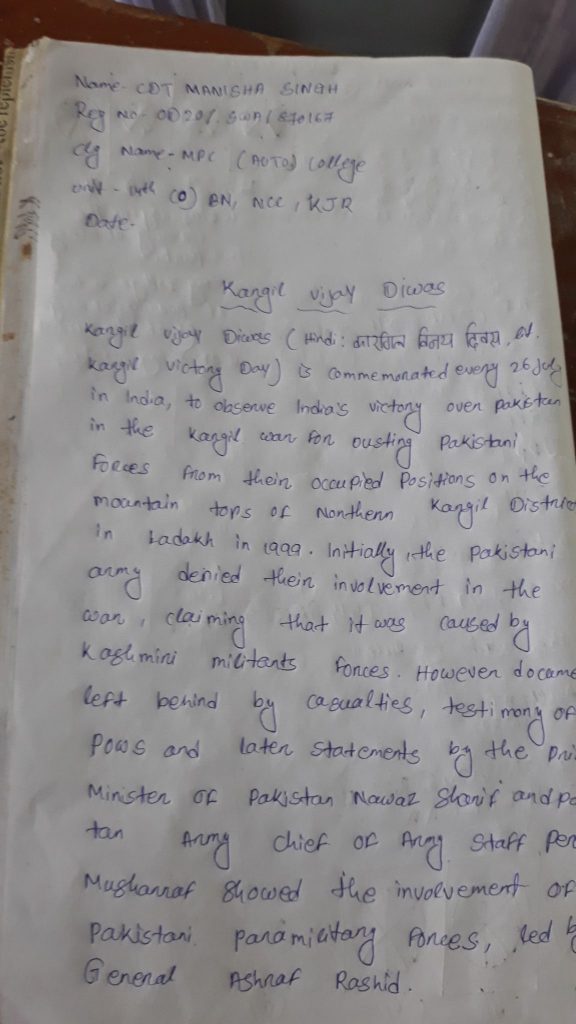 Name- CDT MANISHA SINGH
Reg No- OD20/ SWA/ 870167
Clg Name- MPC (AUTO) College
unit - 14th (O) BN, NCC, KJR
Date-
Kargil vijay Diwas
Kargil vijay Diwas (Hindi: कारगिल विजय दिवस,
Kargil victory Day) is commemorated every 26 July
in India, to observe India's victory over pakistan
in the Kargil war for ousting Pakistani
Forces from their occupied Positions on the
mountain tops of Northern Kargil District
in Ladakh in 1999. Initially, the Pakistani
army denied their involvement in the
war, claiming that it was caused by
Kashmiri militants forces. However docume
left behind by casualties, testimony of
POWS and later statements by the pri
Minister of Pakistan Nawaz Sharif and pa
tan Army chief of Army Staff Per
Musharraf showed the involvement of
Pakistani paramilitary forces, led b
General Ashraf Rashid.